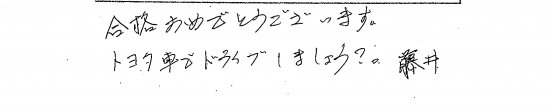 合格おめでとうございます。
トヨタ車でドライブしましょう?。 藤井